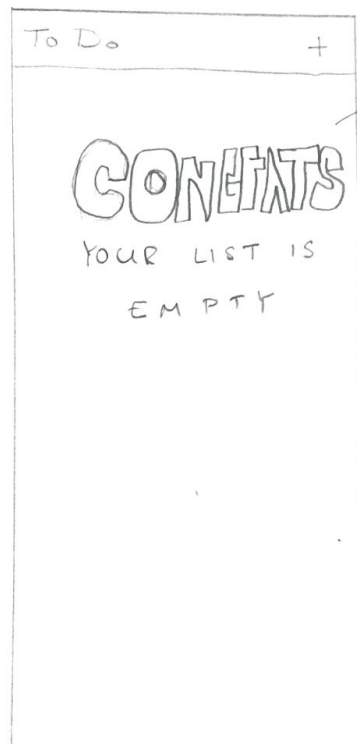 To Do +
CONGRATS
YOUR LIST IS
EMPTY